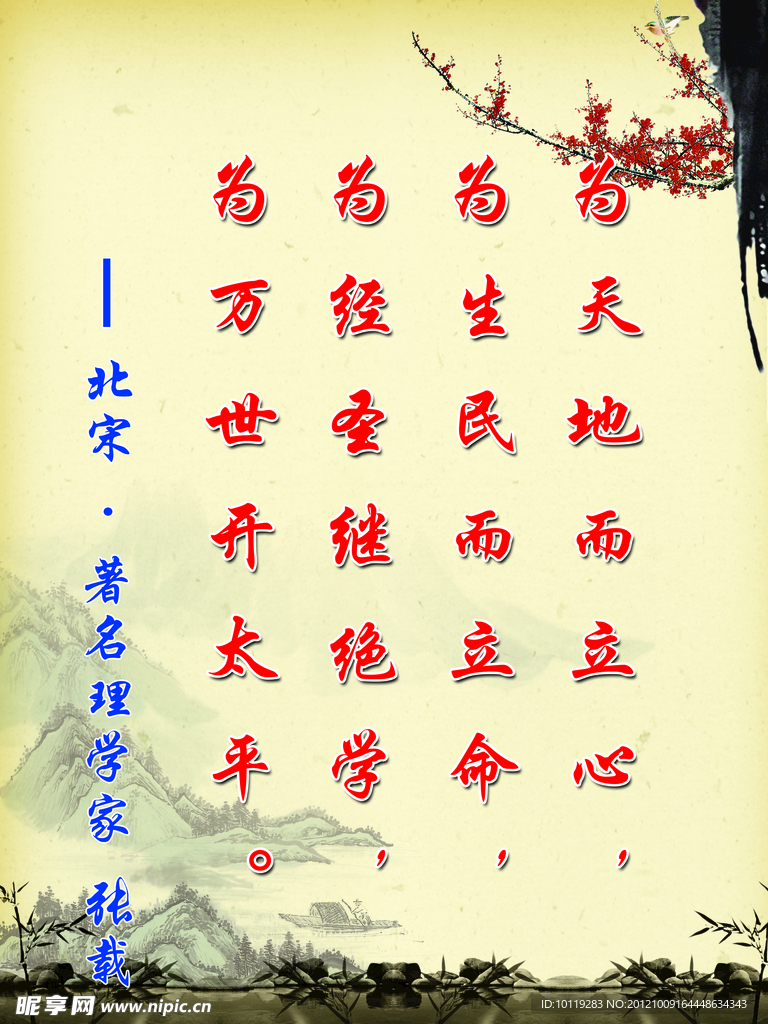 为天地而立心，
为生民而立命，
为经圣继绝学，
为万世开太平。
— 北宋·著名理学家 张载
昵享网 www.nipic.cn
ID:10119283 NO:20121009164448634343